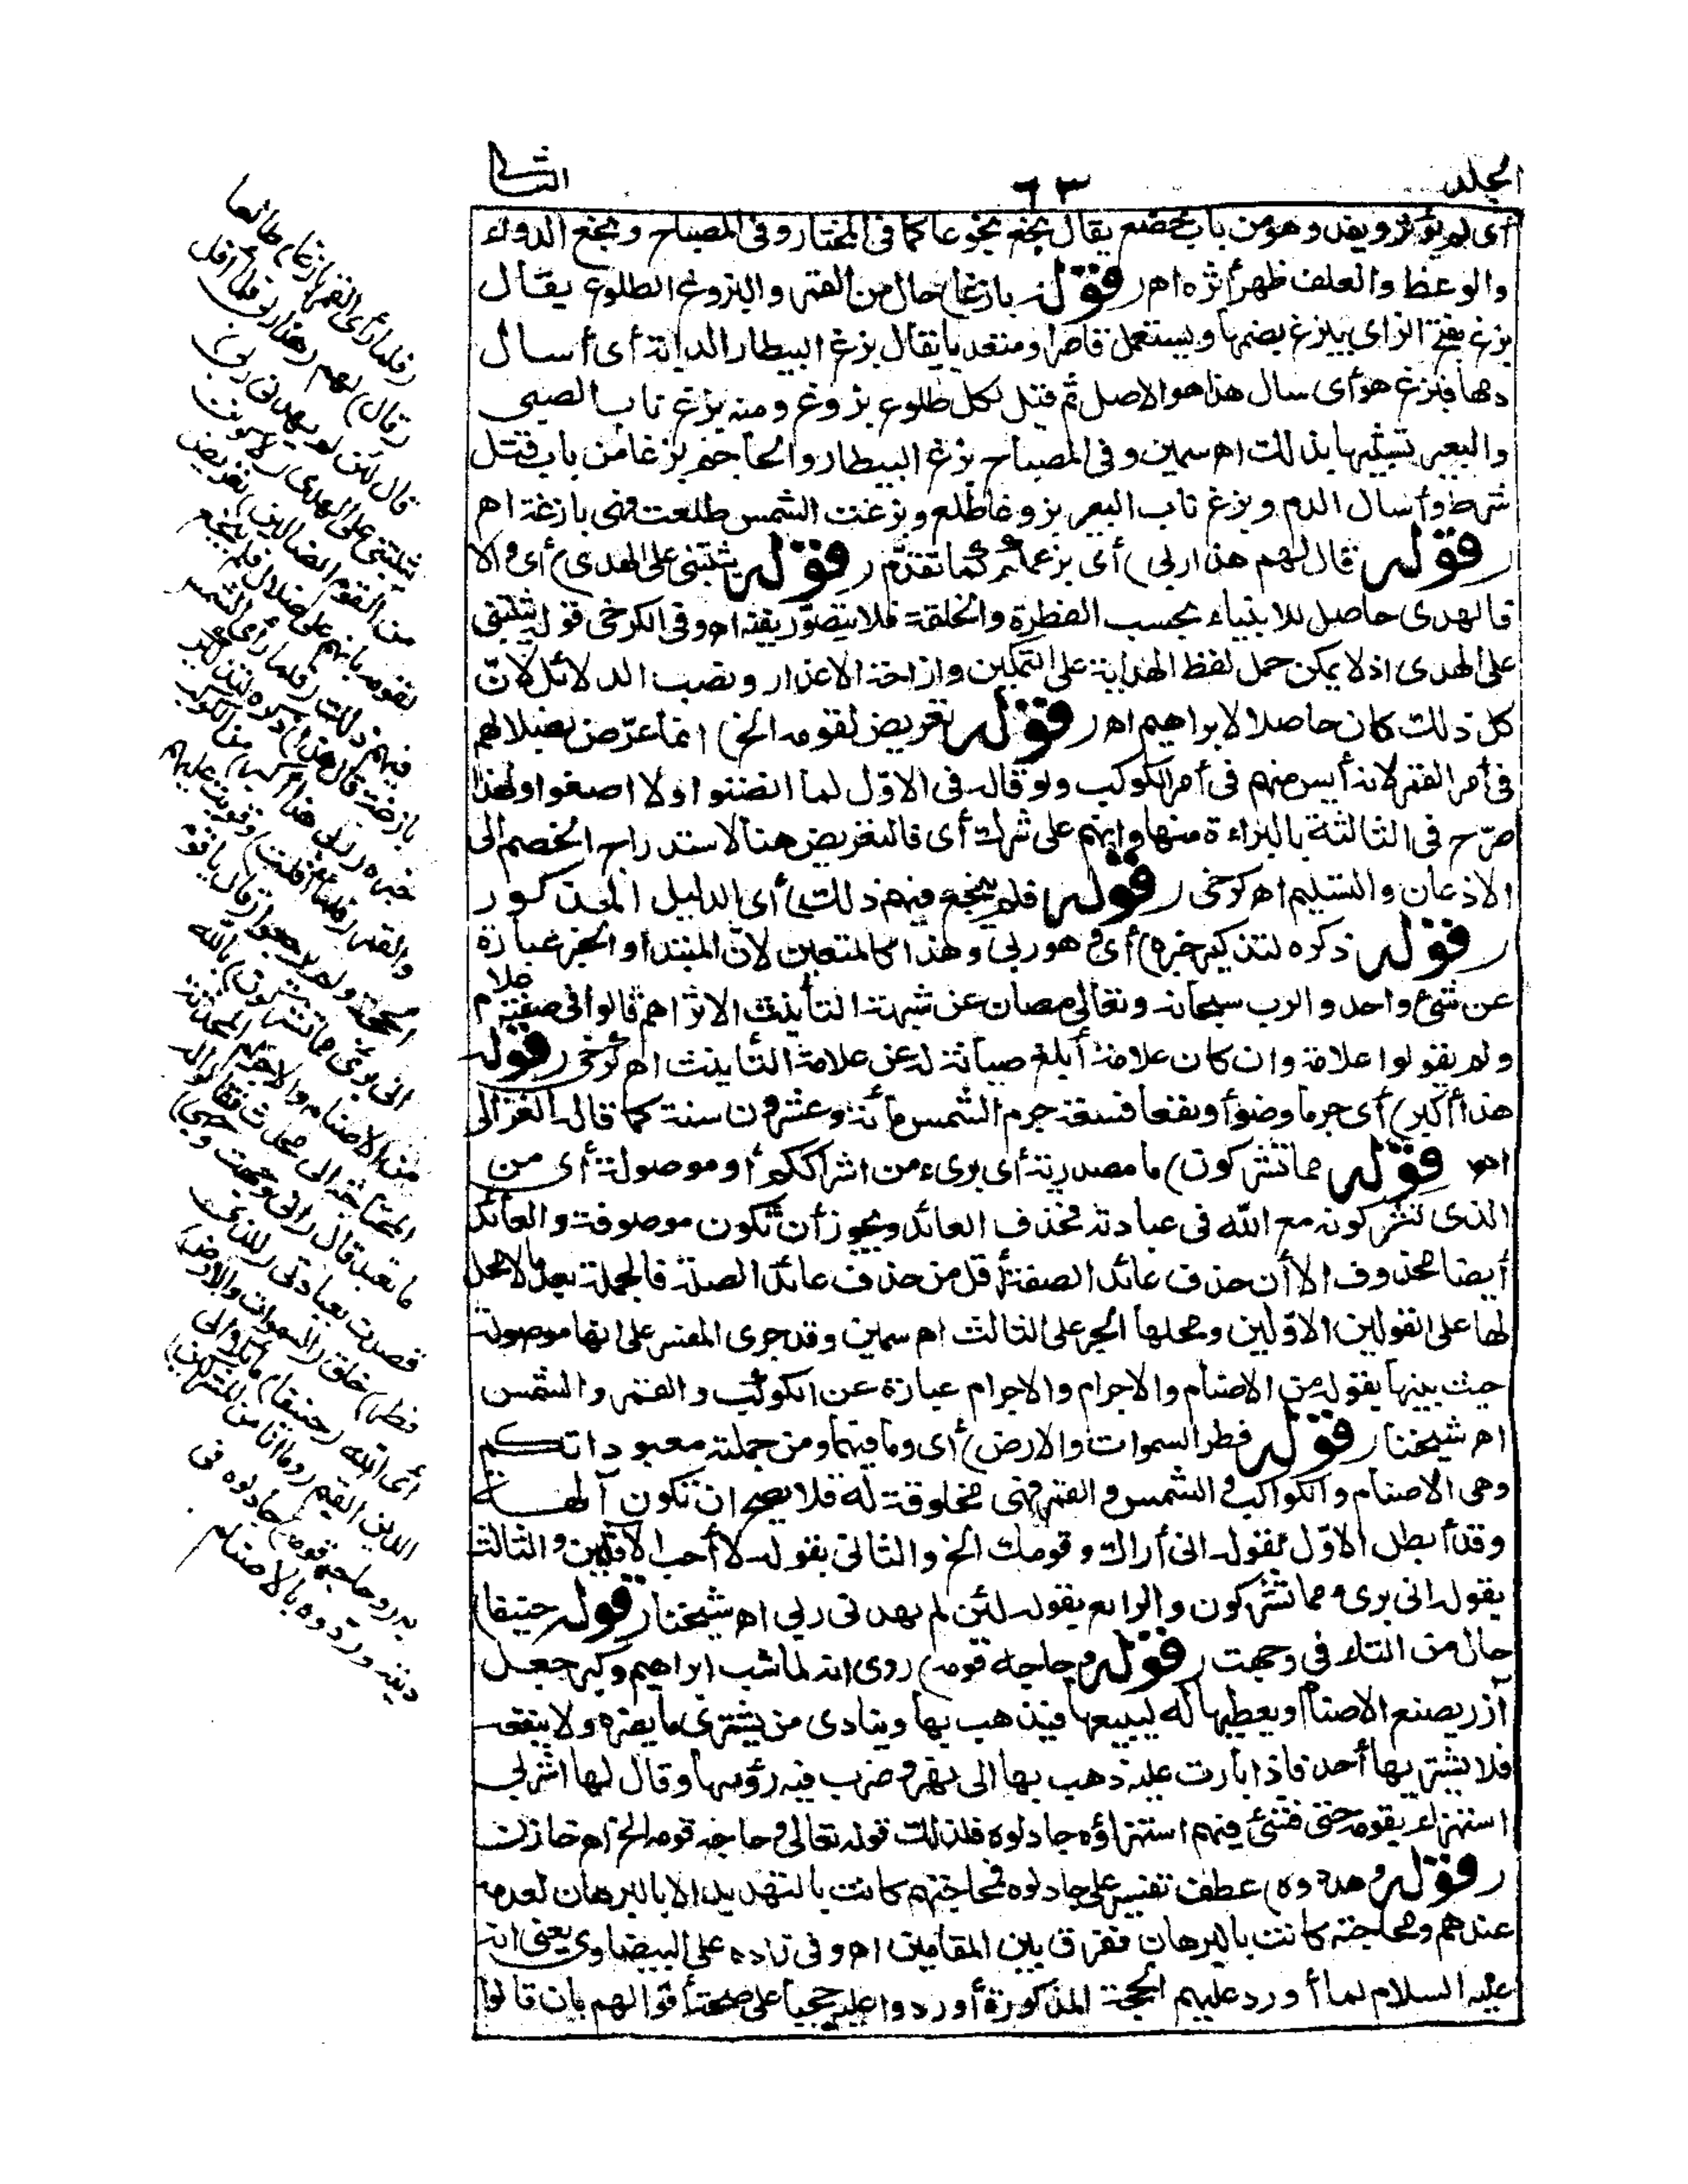 الجلد
٦٣
الثانى
أى لم يؤثر ويفد وهو من باب خضع يقال نجع نجوعا كما فى المختار وفى المصباح ونجع الدواء
والوعظ والعلف ظهر أثره اهـ (قوله بازغا) حال من القمر والبزوغ الطلوع يقال
بزغ بفتح الزاى يبزغ بضمها ويستعمل قاصرا ومتعديا يقال بزغ البيطار الدابة أى أسال
دمها فبزغ هو أى سال هذا هو الاصل ثم قيل لكل طلوع بزوغ ومنه بزغ ناب الصبى
والبعير تشبيها بذلك اهـ سمين وفى المصباح بزغ البيطار والحاجم بزغا من باب قتل
شرط وأسال الدم وبزغ ناب البعير بزوغا طلع وبزغت الشمس طلعت فهى بازغة اهـ
(قوله قال لهم هذا ربى) أى بزعمكم كما تقدّم (قوله يثبتنى على الهدى) أى والا
فالهدى حاصل للانبياء بحسب الفطرة والخلقة فلا يتصوّر نفيه اهـ وفى الكرخى قوله يثبتنى
على الهدى اذ لا يمكن حمل لفظ الهداية على التمكين وازاحة الاعذار ونصب الدلائل لانّ
كل ذلك كان حاصلا لابراهيم اهـ (قوله تعريض لقومه الخ) انما عرّض بضلالهم
فى أمر القمر لانه أيس منهم فى أمر الكوكب ولو قاله فى الاوّل لما انصتوا ولا اصغوا ولهذا
صرّح فى الثالثة بالبراءة منها وانهم على شرك أى فالتعريض هنا لاستدراج الخصم الى
الاذعان والتسليم اهـ كرخى (قوله فلم ينجع فيهم ذلك) أى الدليل المذكور
(قوله ذكره لتذكير خبره) أى وهو ربى وهذا كالمتعين لانّ المبتدا والخبر عبارة
عن شئ واحد والرب سبحانه وتعالى مصان عن شبهة التأنيث الا تراهم قالوا فى صفته علام
ولم يقولوا علامة وان كان علامة أبلغ صيانة له عن علامة التأنيث اهـ كرخى (قوله
هذا أكبر) أى جرما وضوأ ونفعا فسعة جرم الشمس مائة وعشرون سنة كما قاله الغزالى
اهـ (قوله مما تشركون) ما مصدرية أى برىء من اشراككم أو موصولة أى من
الذى تشركونه مع الله فى عبادته فحذف العائد ويجوز أن تكون موصوفة والعائد
أيضا محذوف الا أن حذف عائد الصفة أقل من حذف عائد الصلة فالجملة بعد ما لا محل
لها على القولين الاوّلين ومحلها الجر على الثالث اهـ سمين وقد جرى المفسر على انها موصولة
حيث بينها بقوله من الاصنام والاجرام والاجرام عبارة عن الكوكب والقمر والشمس
اهـ شيخنا (قوله فطر السموات والارض) أى وما فيهما ومن جملته معبوداتكم
وهى الاصنام والكواكب والشمس والقمر فهى مخلوقة له فلا يصح ان تكون آلهة
وقد أبطل الاوّل بقوله انى أراك وقومك الخ والثانى بقوله لا أحب الآفلين والثالث
بقوله انى برىء مما تشركون والرابع بقوله لئن لم يهدنى ربى اهـ شيخنا (قوله حنيفا)
حال من التاء فى وجهت (قوله وحاجه قومه) روى انه لما شب ابراهيم وكبر جعل
آزر يصنع الاصنام ويعطيها له ليبيعها فيذهب بها وينادى من يشترى ما يضره ولا ينفعه
فلا يشتريها أحد فاذا بارت عليه ذهب بها الى نهر وضرب فيه رؤسها وقال لها اشربى
استهزاء بقومه حتى فشئ فيهم استهزاؤه جادلوه فلذلك قوله تعالى وحاجه قومه الخ اهـ خازن
(قوله وهدّدوه) عطف تفسير على جادلوه فمحاجتهم كانت بالتهديد لا بالبرهان لعدمه
عندهم ومحاجته كانت بالبرهان ففرق بين المقامين اهـ وفى زاده على البيضاوى يعنى انه
عليه السلام لما أورد عليهم الحجة المذكورة أوردوا عليه حججا على صحة أقوالهم بان قالوا
(فلما رأى القمر بازغا) طالعا
(قال) لهم (هذا ربى فلما أفل
قال لئن لم يهدنى ربى)
يثبتنى على الهدى (لاكونن
من القوم الضالين) تعريض
لقومه بانهم على ضلال فلم ينجع
فيهم ذلك (فلما رأى الشمس
بازغة قال هذا) ذكره لتذكير
خبره (ربى هذا أكبر) من الكوكب
والقمر (فلما أفلت) وقويت عليهم
الحجة ولم يرجعوا (قال يا قوم
انى برىء مما تشركون) بالله
من الاصنام والاجرام المحدثة
المحتاجة الى محدث فقالوا له
ما تعبد قال (انى وجهت وجهى)
قصدت بعبادتى (للذى
فطر) خلق (السموات والارض)
أى الله (حنيفا) مائلا الى
الدين القيم (وما أنا من المشركين)
به (وحاجه قومه) جادلوه فى
دينه وهددوه بالاصنام